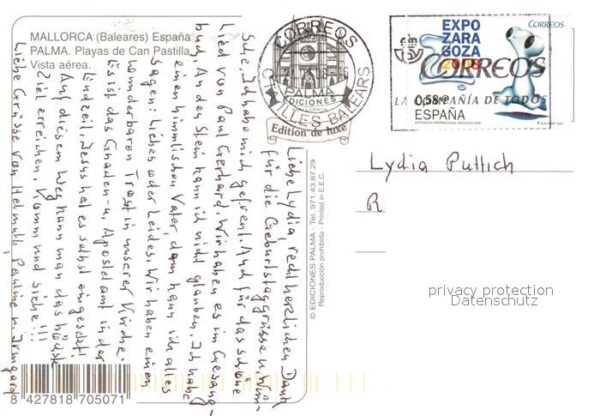 MALLORCA (Baleares) España
PALMA. Playas de Can Pastilla
Vista aérea.
CORREOS
PALMA
EDICIONES
ILLES BALEARS
Edition de luxe
EXPO
ZARA
GOZA
2008
CORREOS
LA COMPAÑÍA DE TODOS
0,58 €
ESPAÑA
© EDICIONES PALMA - Tel. 971 43.87.29
Reproducción prohibida - Printed in E.E.C.
Liebe Lydia, recht herzlichen Dank
für die Geburtstagsgrüsse u. Wün-
sche. Ich habe mich gefreut. Auch für das schöne
Lied von Paul Gerhard. Wir haben es im Gesang-
buch. An den Stein kann ich nicht glauben. Ich habe
einen himmlischen Vater, dem kann ich alles
sagen: Liebes oder Leides. Wir haben einen
wunderbaren Trost in unserer Kirche.
Es ist das Gnaden- u. Apostelamt in der
Endzeit. Jesus hat es selbst eingesetzt
Auf diesem Weg kann man das höchste
Ziel erreichen. Komm und siehe!!!
Liebe Grüsse von Helmuth, Pauline u. Irmgard
Lydia Puttich
R
privacy protection
Datenschutz
8 427818 705071